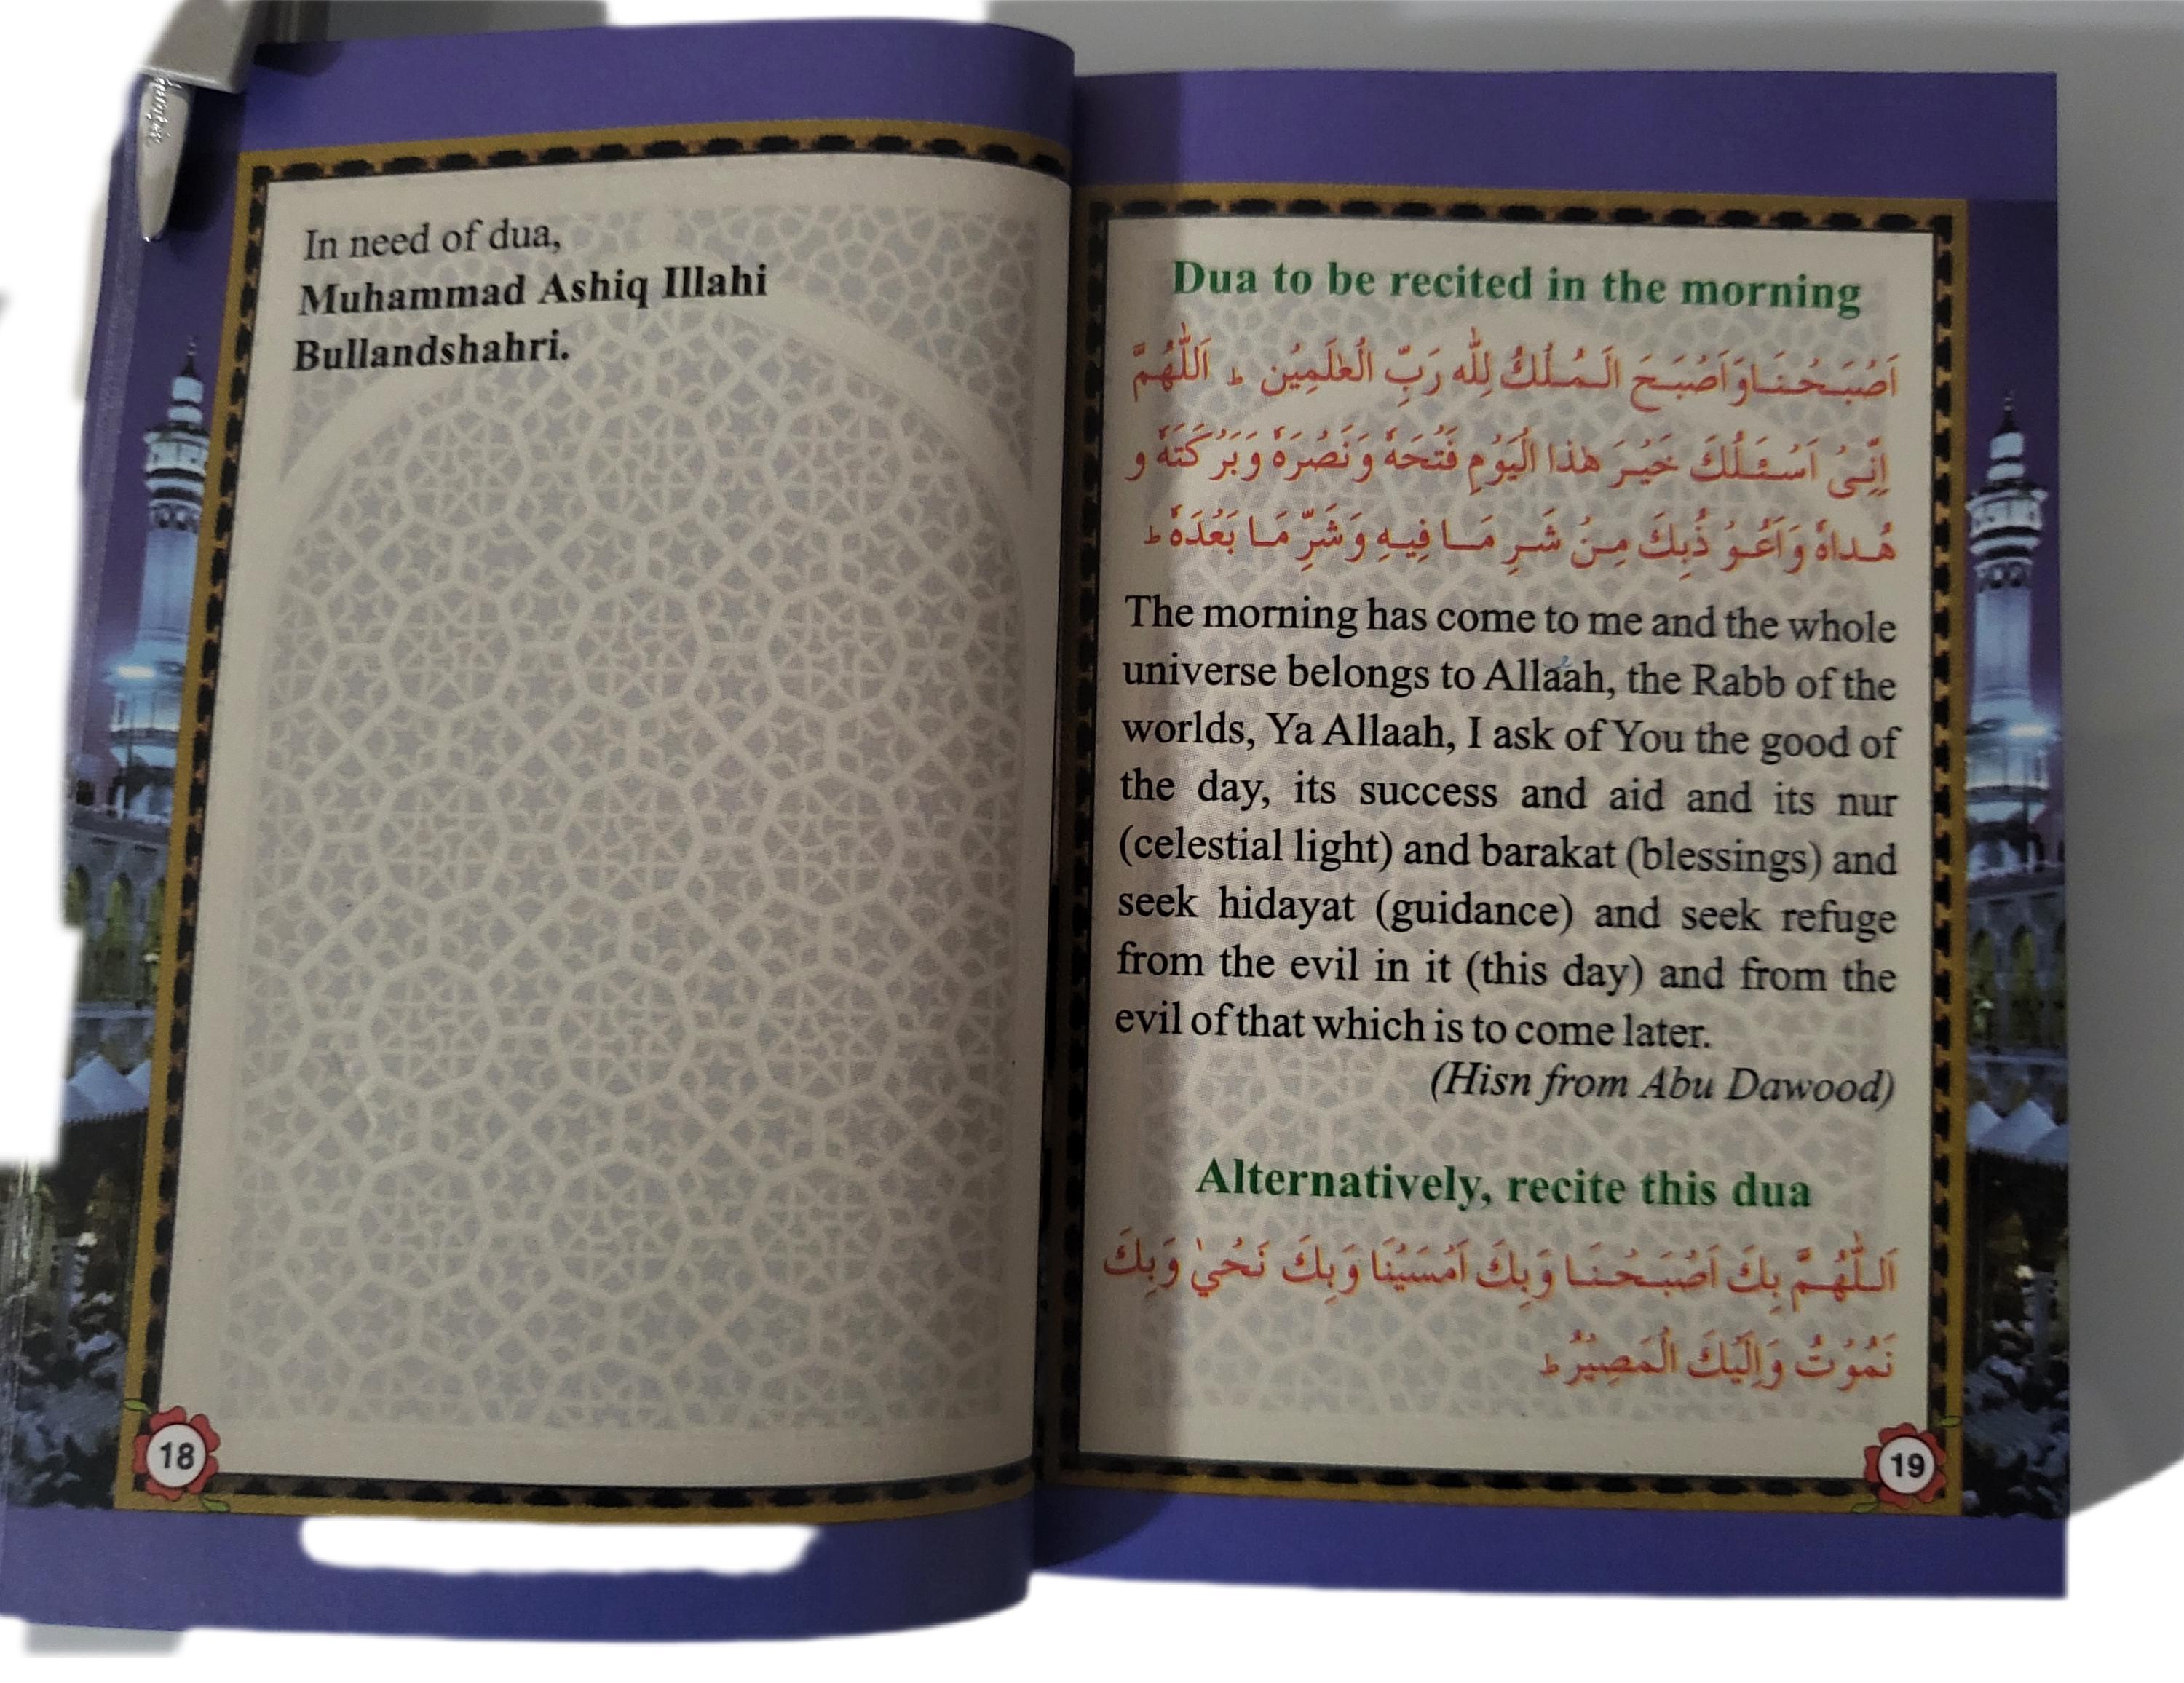 In need of dua,
Muhammad Ashiq Illahi
Bullandshahri.
18
Dua to be recited in the morning
اَصْبَحْنَا وَاَصْبَحَ الْمُلْكُ لِلّٰهِ رَبِّ الْعٰلَمِيْن ط اَللّٰهُمَّ
اِنِّىْ اَسْئَلُكَ خَيْرَ هٰذا الْيَوْمِ فَتْحَهٗ وَنَصْرَهٗ وَبَرْكَتَهٗ و
هُداهٗ وَاَعُوْ ذُبِكَ مِنْ شَرِ مَا فِيهِ وَشَرِّ مَا بَعْدَهٗ ط
The morning has come to me and the whole
universe belongs to Allaah, the Rabb of the
worlds, Ya Allaah, I ask of You the good of
the day, its success and aid and its nur
(celestial light) and barakat (blessings) and
seek hidayat (guidance) and seek refuge
from the evil in it (this day) and from the
evil of that which is to come later.
(Hisn from Abu Dawood)
Alternatively, recite this dua
اَللّٰهُمَّ بِكَ اَصْبَحْنَا وَبِكَ اَمْسَيْنَا وَبِكَ نَحْيٰ وَبِكَ
نَمُوْتُ وَاِلَيْكَ الْمَصِيْرُ ط
19